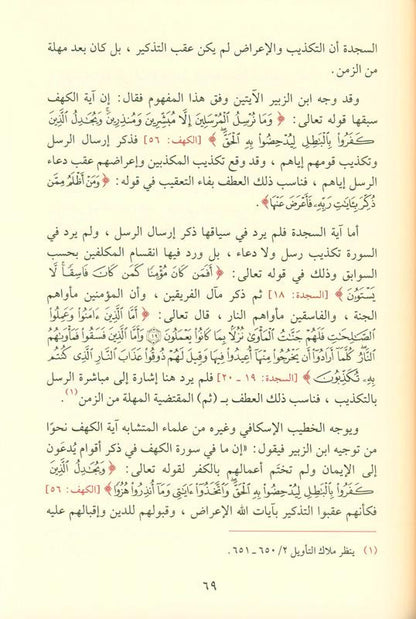 السجدة أن التكذيب والإعراض لم يكن عقب التذكير، بل كان بعد مهلة
من الزمن.
وقد وجه ابن الزبير الآيتين وفق هذا المفهوم فقال: إن آية الكهف
سبقها قوله تعالى: ﴿وَمَا نُرْسِلُ الْمُرْسَلِينَ إِلَّا مُبَشِّرِينَ وَمُنذِرِينَ وَيُجَادِلُ الَّذِينَ
كَفَرُوا بِالْبَاطِلِ لِيُدْحِضُوا بِهِ الْحَقَّ﴾ [الكهف: ٥٦] فذكر إرسال الرسل
وتكذيب قومهم إياهم، وقد وقع تكذيب المكذبين وإعراضهم عقب دعاء
الرسل إياهم، فناسب ذلك العطف بفاء التعقيب في قوله: ﴿وَمَنْ أَظْلَمُ مِمَّن
ذُكِّرَ بِآيَاتِ رَبِّهِ فَأَعْرَضَ عَنْهَا﴾.
أما آية السجدة فلم يرد في سياقها ذكر إرسال الرسل، ولم يرد في
السورة تكذيب رسل ولا دعاء، بل ورد فيها انقسام المكلفين بحسب
السوابق وذلك في قوله تعالى: ﴿أَفَمَن كَانَ مُؤْمِنًا كَمَن كَانَ فَاسِقًا لَّا
يَسْتَوُونَ﴾ [السجدة: ١٨] ثم ذكر مآل الفريقين، وأن المؤمنين مأواهم
الجنة، والفاسقين مأواهم النار، قال تعالى: ﴿أَمَّا الَّذِينَ آمَنُوا وَعَمِلُوا
الصَّالِحَاتِ فَلَهُمْ جَنَّاتُ الْمَأْوَى نُزُلًا بِمَا كَانُوا يَعْمَلُونَ ١٩ وَأَمَّا الَّذِينَ فَسَقُوا فَمَأْوَاهُمُ
النَّارُ كُلَّمَا أَرَادُوا أَن يَخْرُجُوا مِنْهَا أُعِيدُوا فِيهَا وَقِيلَ لَهُمْ ذُوقُوا عَذَابَ النَّارِ الَّذِي كُنتُم
بِهِ تُكَذِّبُونَ﴾ [السجدة: ١٩ - ٢٠] فلم يرد هنا إشارة إلى مباشرة الرسل
بالتكذيب، فناسب ذلك العطف بـ (ثم) المقتضية المهلة من الزمن(١).
ويوجه الخطيب الإسكافي وغيره من علماء المتشابه آية الكهف نحوًا
من توجيه ابن الزبير فيقول: «إن ما في سورة الكهف في ذكر أقوام يُدعَون
إلى الإيمان ولم تختَم أعمالهم بالكفر لقوله تعالى: ﴿وَيُجَادِلُ الَّذِينَ
كَفَرُوا بِالْبَاطِلِ لِيُدْحِضُوا بِهِ الْحَقَّ وَاتَّخَذُوا آيَاتِي وَمَا أُنذِرُوا هُزُوًا﴾ [الكهف: ٥٦]
فكأنهم عقبوا التذكير بآيات الله الإعراض، وقبولهم للدين وإقبالهم عليه
(١) ينظر ملاك التأويل ٢/ ٦٥٠ - ٦٥١.
٦٩